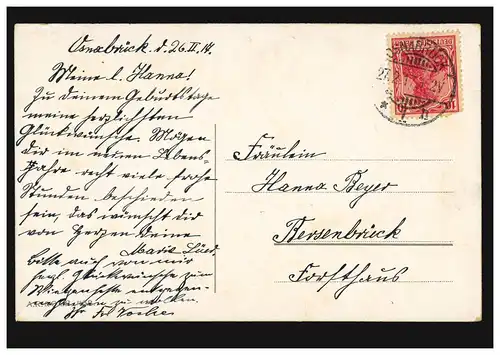 Osnabrück. d. 26. II. 14.
Meine l. Hanna!
Zu Deinem Geburtstage
meine herzlichsten
Glückwünsche. Mögen
dir im neuen Lebens-
Jahre recht viele frohe
Stunden beschieden
sein, das wünscht dir
von Herzen Deine
Maria
Bitte auch von mir
Glückwünsche zum
Wiegenfeste entgegen-
zu
Fräulein
Hanna Beyer
Bersenbrück
Forsthaus